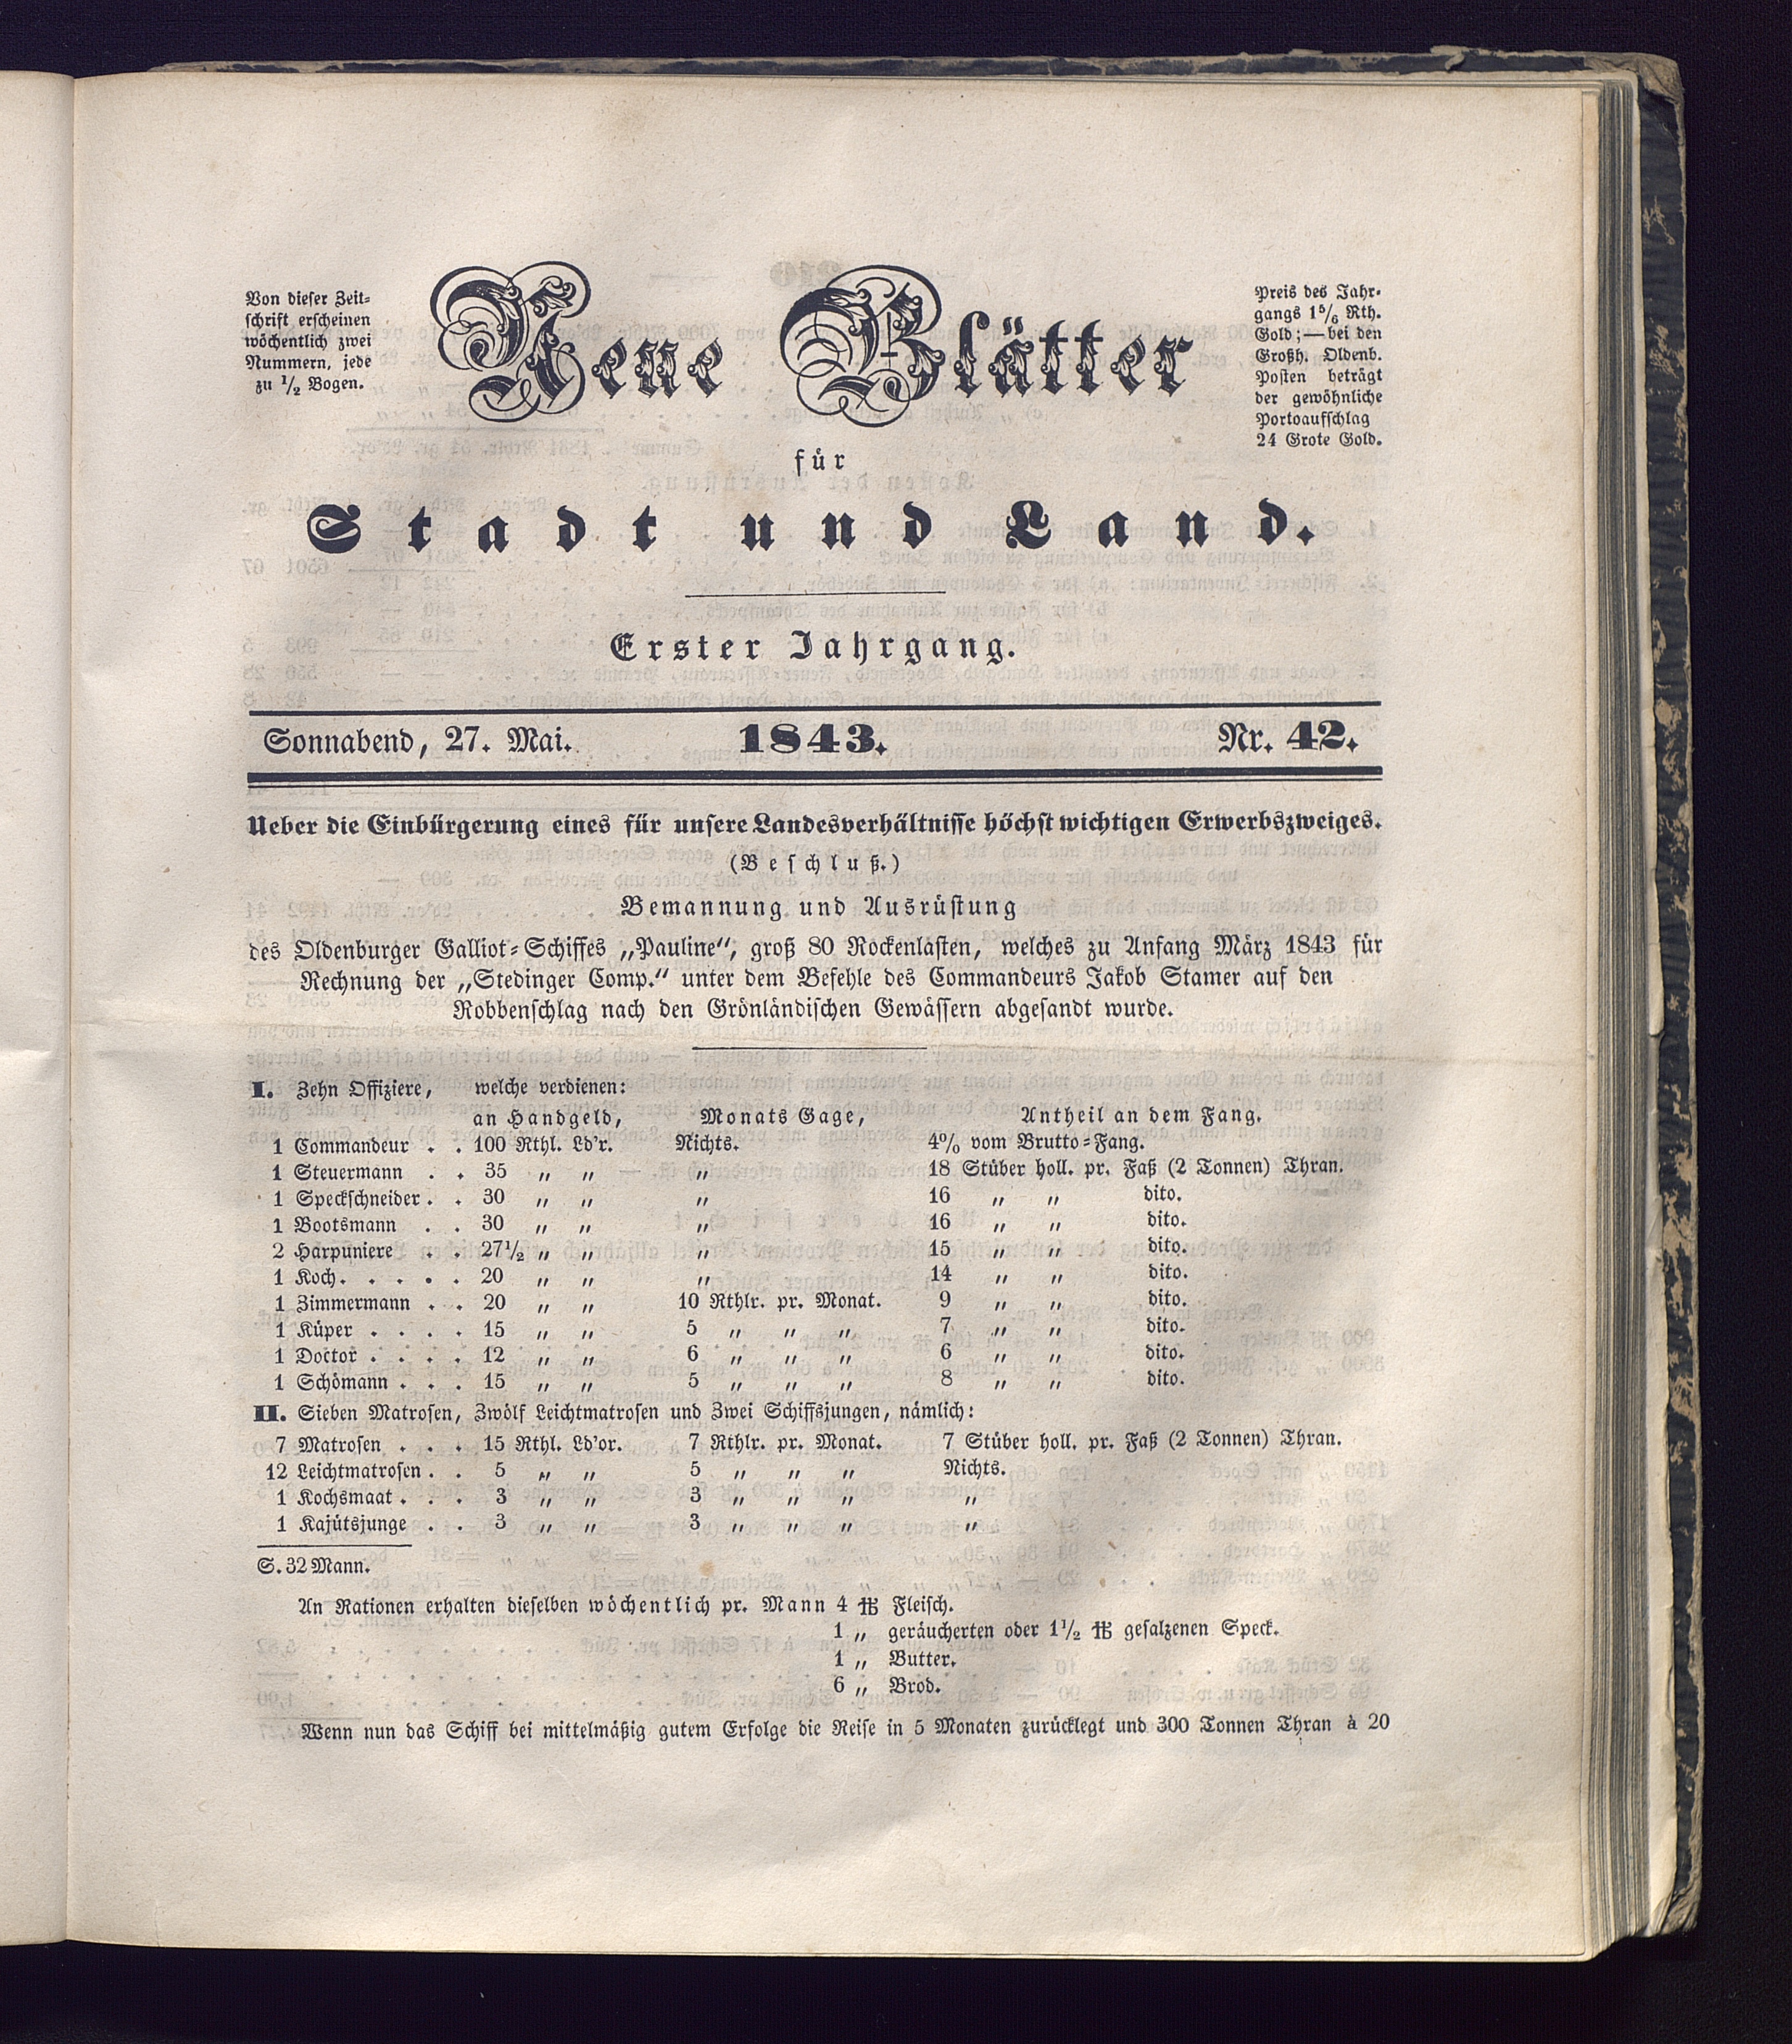 Von dieser Zeit-
schrift erscheinen
wöchentlich zwei
Nummern, jede
zu 1/2 Bogen.
Neue Blätter
Preis des Jahr-
gangs 1 5/6 Rth.
Gold; — bei den
Großh. Oldenb.
Posten beträgt
der gewöhnliche
Portoaufschlag
24 Grote Gold.
für
Stadt und Land.
Erster Jahrgang.
Sonnabend, 27. Mai. 1843. Nr. 42.
Ueber die Einbürgerung eines für unsere Landesverhältnisse höchst wichtigen Erwerbszweiges.
(Beschluß.)
Bemannung und Ausrüstung
des Oldenburger Galliot-Schiffes „Pauline“, groß 80 Rockenlasten, welches zu Anfang März 1843 für
Rechnung der „Stedinger Comp.“ unter dem Befehle des Commandeurs Jakob Stamer auf den
Robbenschlag nach den Grönländischen Gewässern abgesandt wurde.
I. Zehn Offiziere, welche verdienen:
an Handgeld, Monats Gage, Antheil an dem Fang.
1 Commandeur . . 100 Rthl. Ld'r. Nichts. 4% vom Brutto-Fang.
1 Steuermann . . 35 „ „ „ 18 Stüber holl. pr. Faß (2 Tonnen) Thran.
1 Speckschneider . . 30 „ „ „ 16 „ „ dito.
1 Bootsmann . . 30 „ „ „ 16 „ „ dito.
2 Harpuniere . . 27 1/2 „ „ „ 15 „ „ dito.
1 Koch . . . . . 20 „ „ „ 14 „ „ dito.
1 Zimmermann . . 20 „ „ 10 Rthlr. pr. Monat. 9 „ „ dito.
1 Küper . . . . 15 „ „ 5 „ „ „ 7 „ „ dito.
1 Doctor . . . . 12 „ „ 6 „ „ „ 6 „ „ dito.
1 Schömann . . . 15 „ „ 5 „ „ „ 8 „ „ dito.
II. Sieben Matrosen, Zwölf Leichtmatrosen und Zwei Schiffsjungen, nämlich:
7 Matrosen . . . 15 Rthl. Ld'or. 7 Rthlr. pr. Monat. 7 Stüber holl. pr. Faß (2 Tonnen) Thran.
12 Leichtmatrosen . . 5 „ „ 5 „ „ „ Nichts.
1 Kochsmaat . . . 3 „ „ 3 „ „ „ „
1 Kajütsjunge . . 3 „ „ 3 „ „ „ „
S. 32 Mann.
An Rationen erhalten dieselben wöchentlich pr. Mann 4 ℔ Fleisch.
1 „ geräucherten oder 1 1/2 ℔ gesalzenen Speck.
1 „ Butter.
6 „ Brod.
Wenn nun das Schiff bei mittelmäßig gutem Erfolge die Reise in 5 Monaten zurücklegt und 300 Tonnen Thran à 20